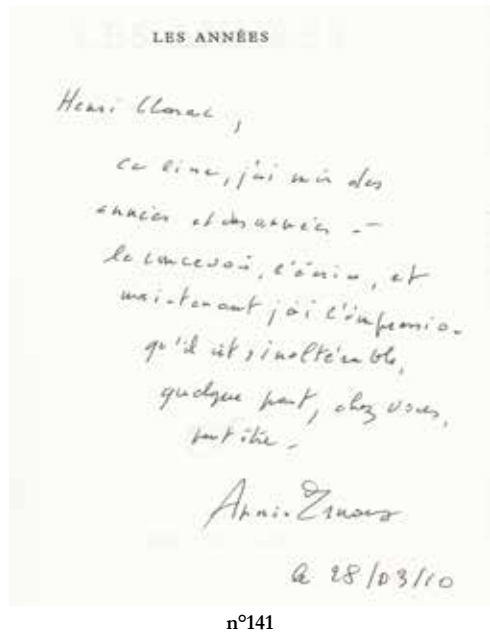 LES ANNÉES
Henri
ce livre, j'ai mis des
années et des années à
le concevoir, l'écrire, et
maintenant j'ai l'impression
qu'il est, inaltérable,
quelque part, chez vous,
peut-être.
Annie Ernaux
le 28/03/10
n°141